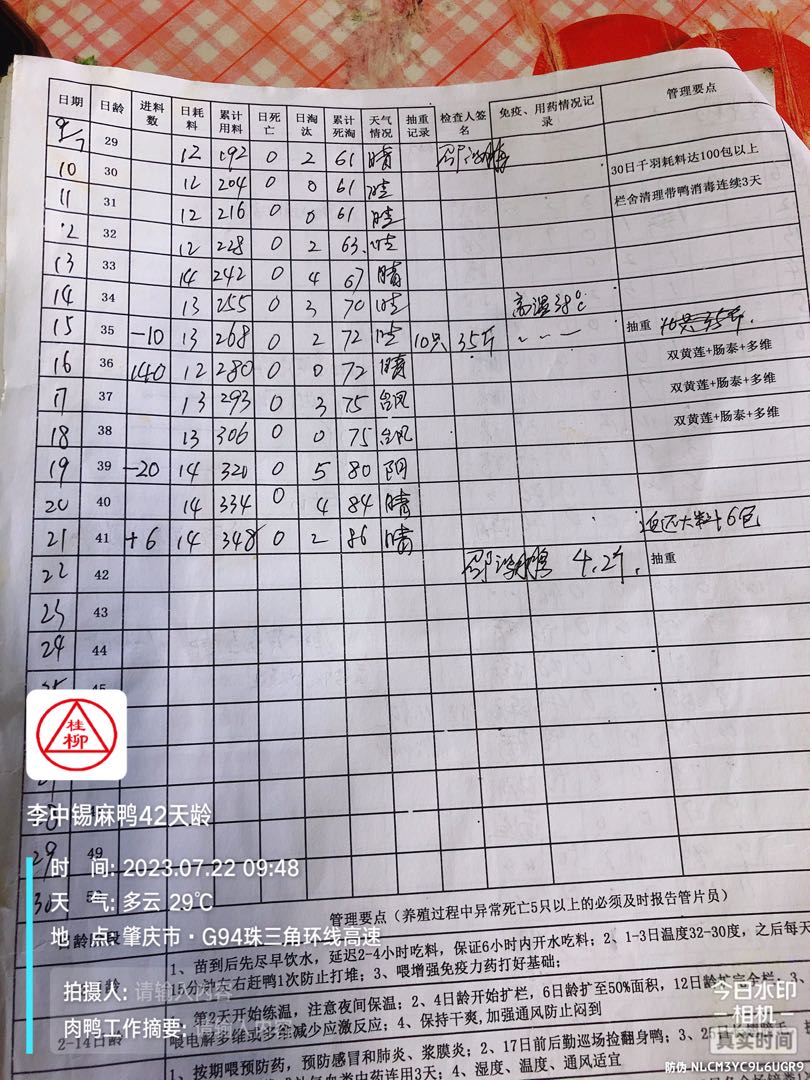 日期 日龄 进料数 日耗料 累计用料 日死亡 日淘汰 累计死淘 天气情况 抽重记录 检查人签名 免疫、用药情况记录 管理要点
9/7 29 12 192 0 2 61 晴
10 30 12 204 0 0 61 晴 30日千羽耗料达100包以上
11 31 12 216 0 0 61 晴 栏舍清理带鸭消毒连续3天
12 32 12 228 0 2 63 晴
13 33 14 242 0 4 67 晴
14 34 13 255 0 3 70 晴 高温38℃
15 35 -10 13 268 0 2 72 晴 10只 35斤 抽重
16 36 140 12 280 0 0 72 晴 双黄莲+肠泰+多维
17 37 13 293 0 3 75 台风 双黄莲+肠泰+多维
18 38 13 306 0 0 75 台风 双黄莲+肠泰+多维
19 39 -20 14 320 0 5 80 阴
20 40 14 334 0 4 84 晴
21 41 +6 14 348 0 2 86 晴 6包
22 42 4.2斤. 抽重
23 43
24 44
桂柳
李中锡麻鸭42天龄
29 49
30
时 间: 2023.07.22 09:48
天 气: 多云 29℃
地 点: 肇庆市·G94珠三角环线高速
拍摄人: 请输入内容
肉鸭工作摘要: 请输入内容
管理要点（养殖过程中异常死亡5只以上的必须及时报告管片员）
1、苗到后先尽早饮水，延迟2-4小时吃料，保证6小时内开水吃料；2、1-3日温度32-30度，之后每天
15分钟左右赶鸭1次防止打堆；3、喂增强免疫力药打好基础；
2-14日龄
1、第2天开始练温，注意夜间保温；2、4日龄开始扩栏，6日龄扩至50%面积，12日龄扩完全栏、3、
喂电解多维或多维减少应激反应；4、保持干爽,加强通风防止闷到
1、按期喂预防药，预防感冒和肺炎、浆膜炎；2、17日前后勤巡场捡翻身鸭；3、25日
中药连用3天；4、湿度、温度、通风适宜
今日水印
相机
真实时间
防伪 NLCM3YC9L6UGR9